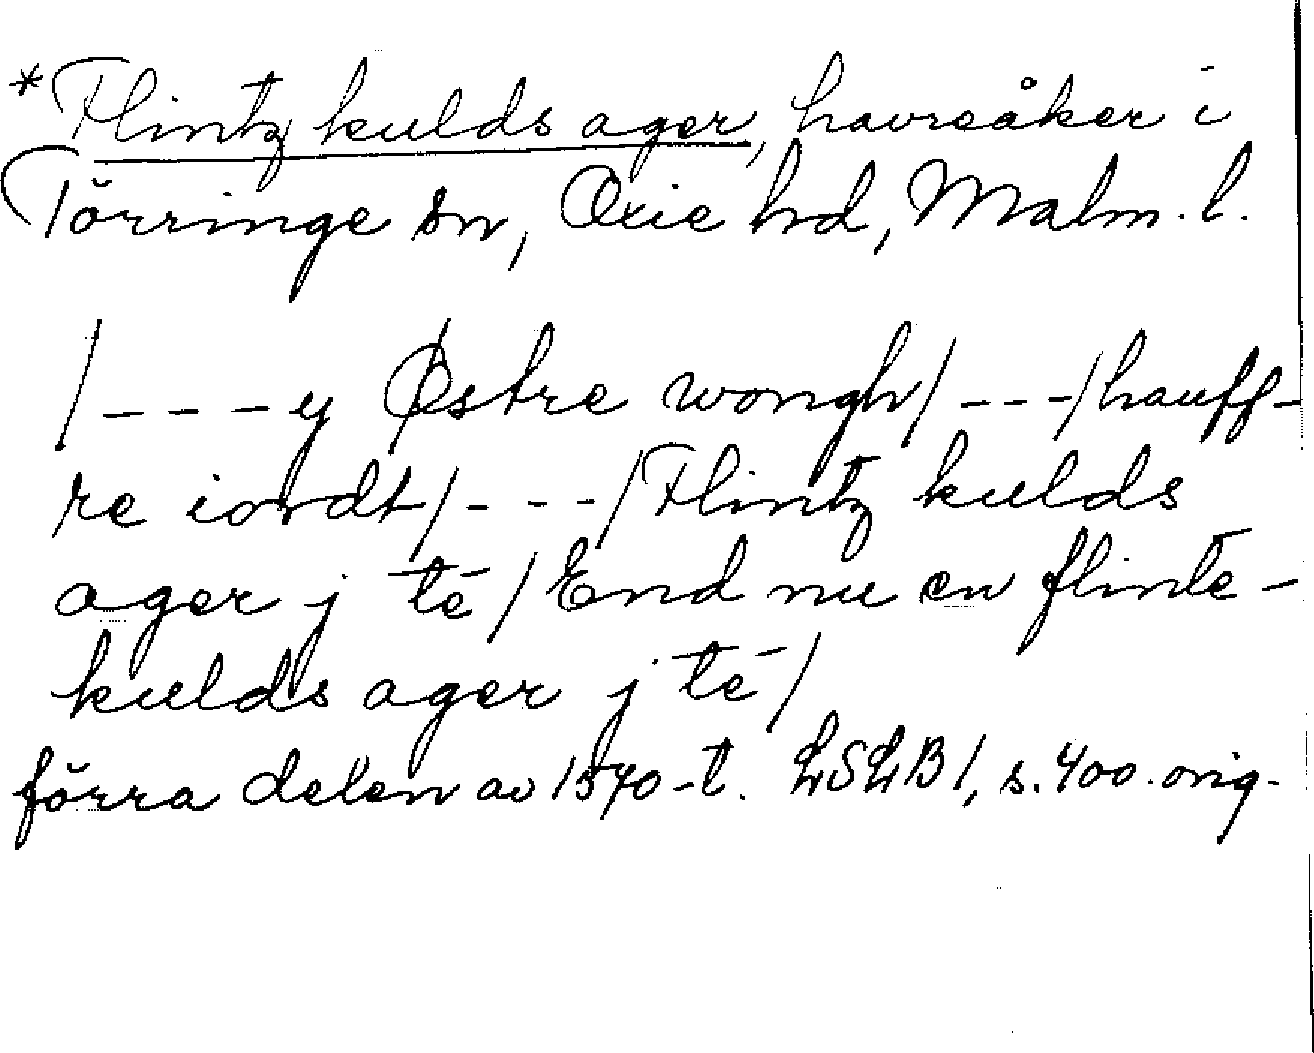 *Flintz kulds ager, havreåker i
Törringe sn, Oxie hd, Malm. l.
/---y Østre wongh/---/hauff-
re iordt/---/Flintz kulds
ager j te/End nu en flinte-
kulds ager j te/
förra delen av 1570-t. LSLB 1, s. 400. orig.